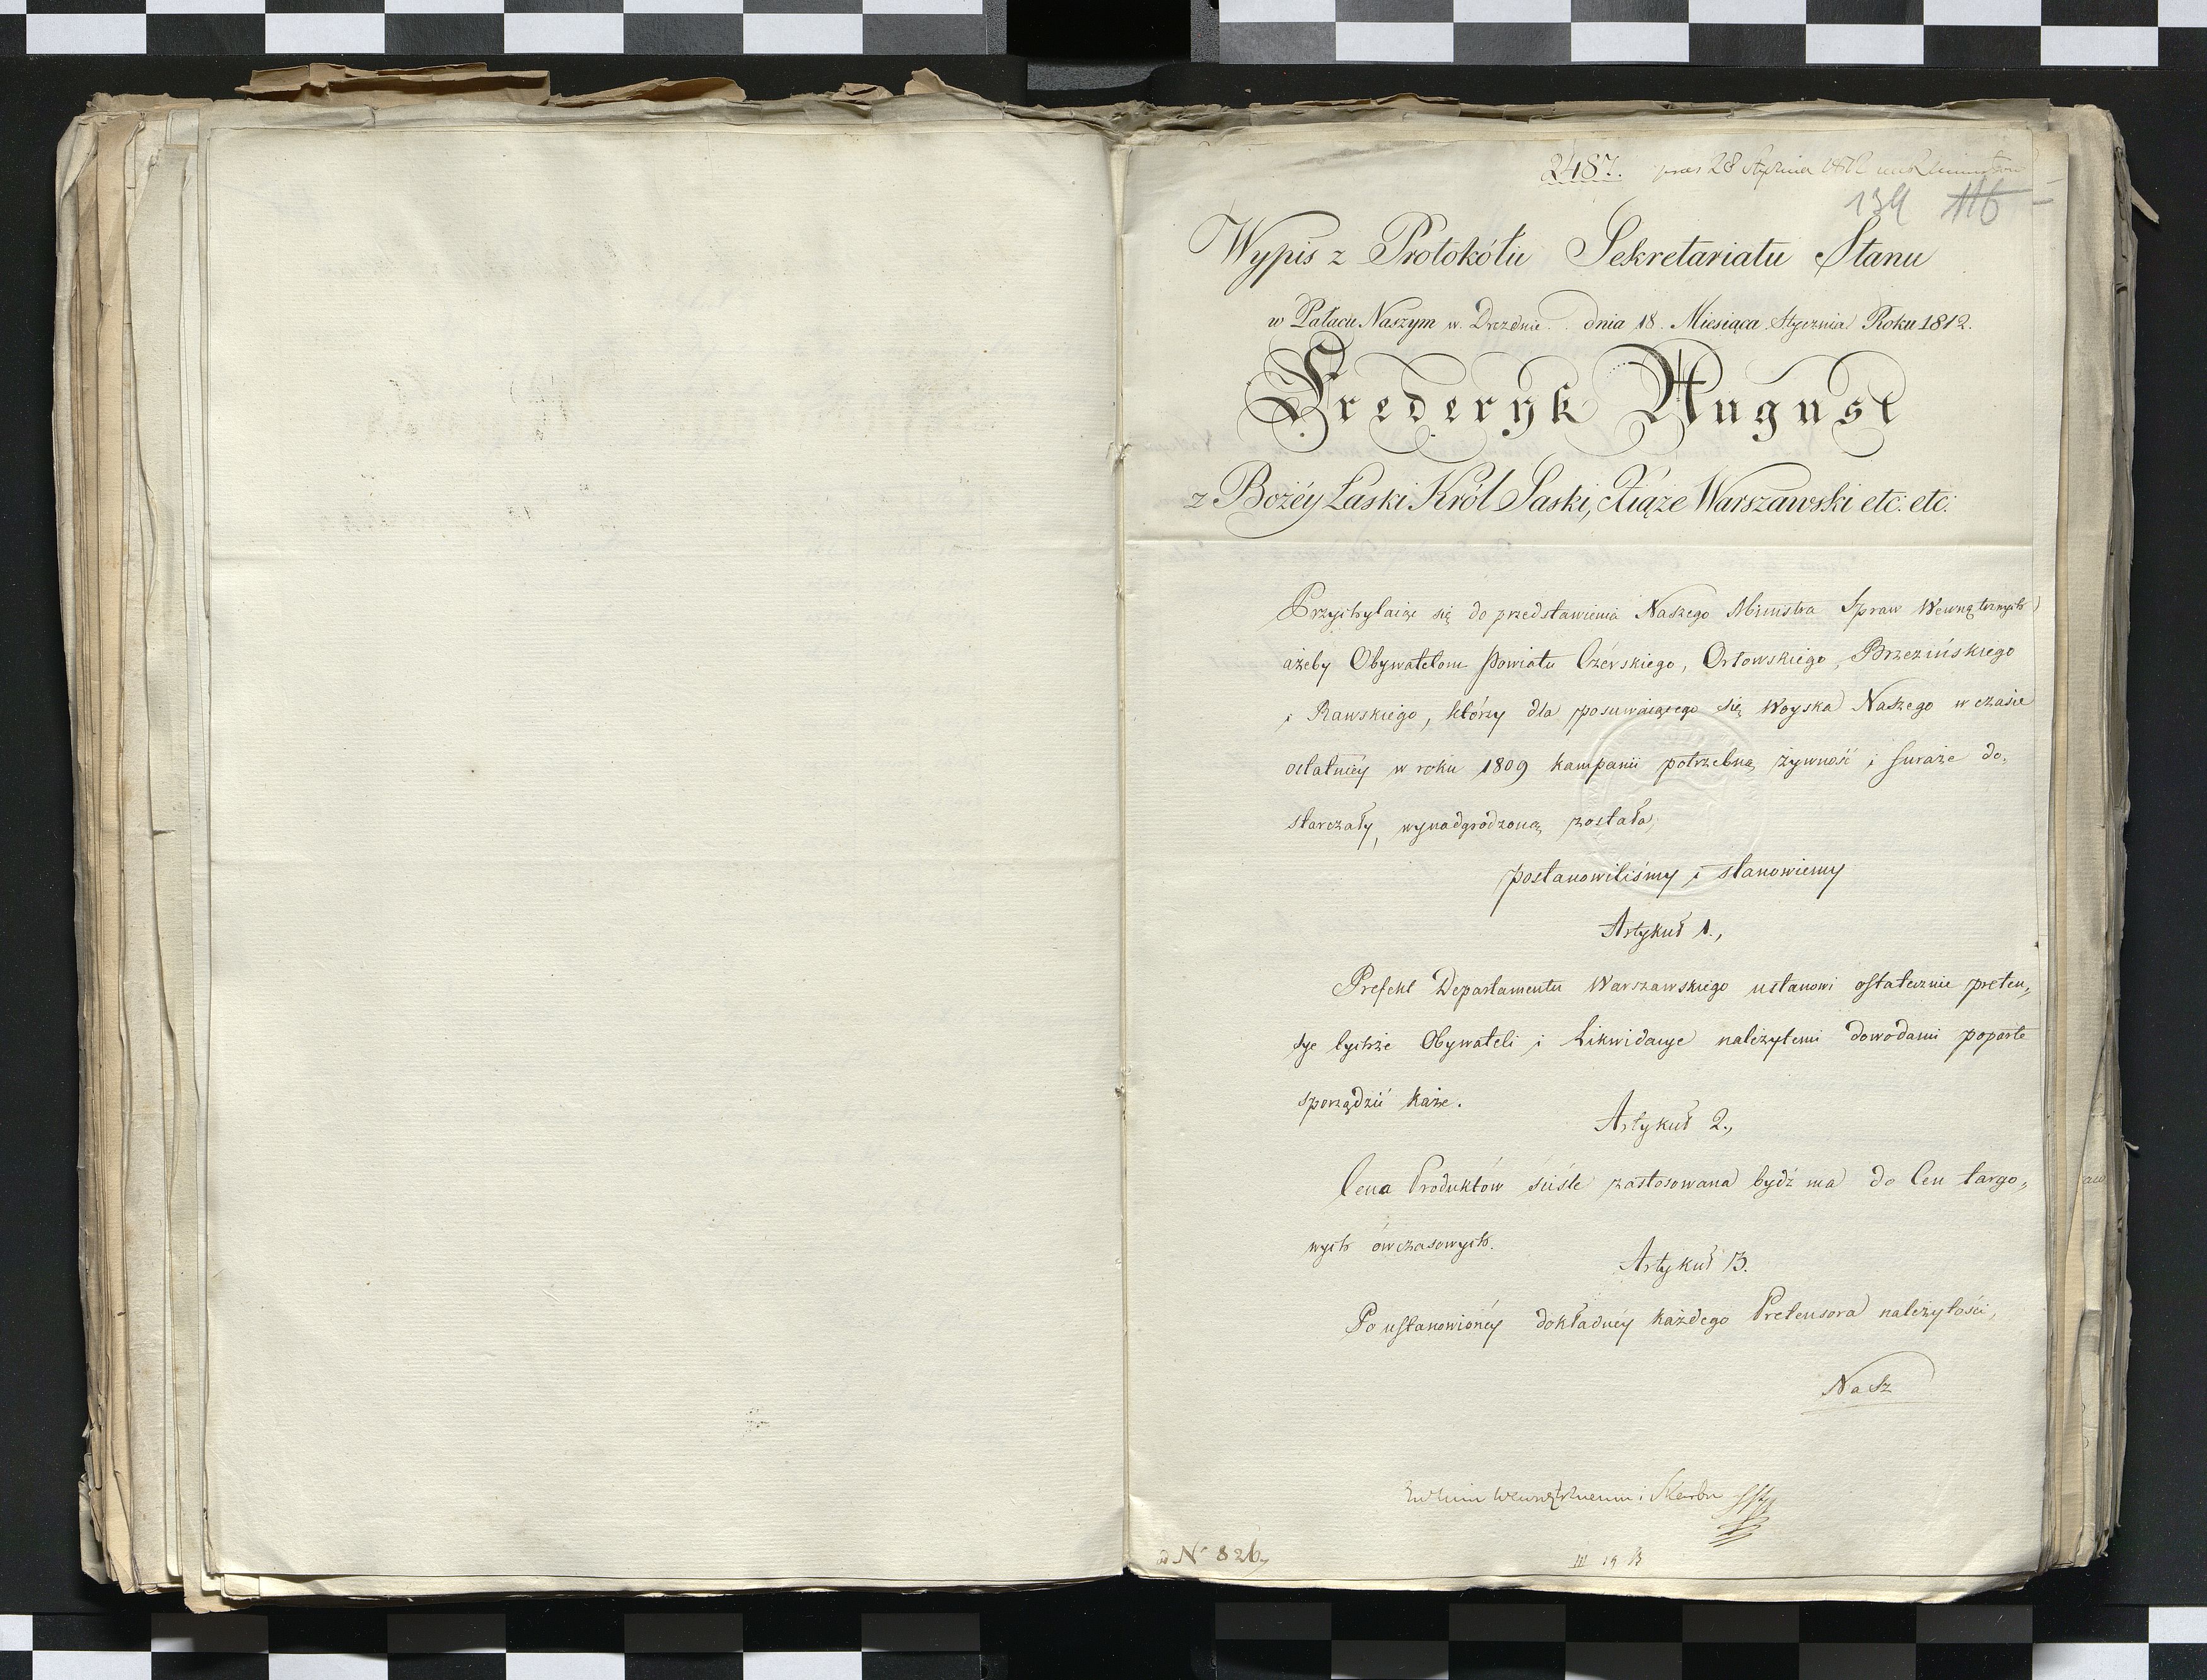 2487. 28 Stycznia 1812
134 116
Wypis z Protokółu Sekretariatu Stanu
w Pałacu Naszym w Dreznie dnia 18. Miesiąca Stycznia Roku 1812.
Frederyk August
z Bożéy Łaski Król Saski, Xiąże Warszawski etc: etc:
Przychylaiąc się do przedstawienia Naszego Ministra Spraw Wewnętrznych
ażeby Obywatelom Powiatu Czérskiego, Orłowskiego, Brzezińskiego
i Rawskiego, którzy dla posuwaiącego się Woyska Naszego w czasie
ostatniéy w roku 1809 kampanii potrzebną żywność i furaże do„
starczały, wynadgrodzoną została,
postanowiliśmy i stanowiemy
Artykuł 1.,
Prefekt Departamentu Warszawskiego ustanowi ostatecznie preten„
sye tychże Obywateli i Likwidacye należytemi dowodami poparte
sporządzić każe.
Artykuł 2.,
Cena Produktów ściśle zastosowana bydź ma do Cen targo„
wych ówczasowych.
Artykuł 3.
Po ustanowionéy dokładnéy każdego Pretensora należytości,
Nasz
i Skarbu
ad N 826,
III 19 B